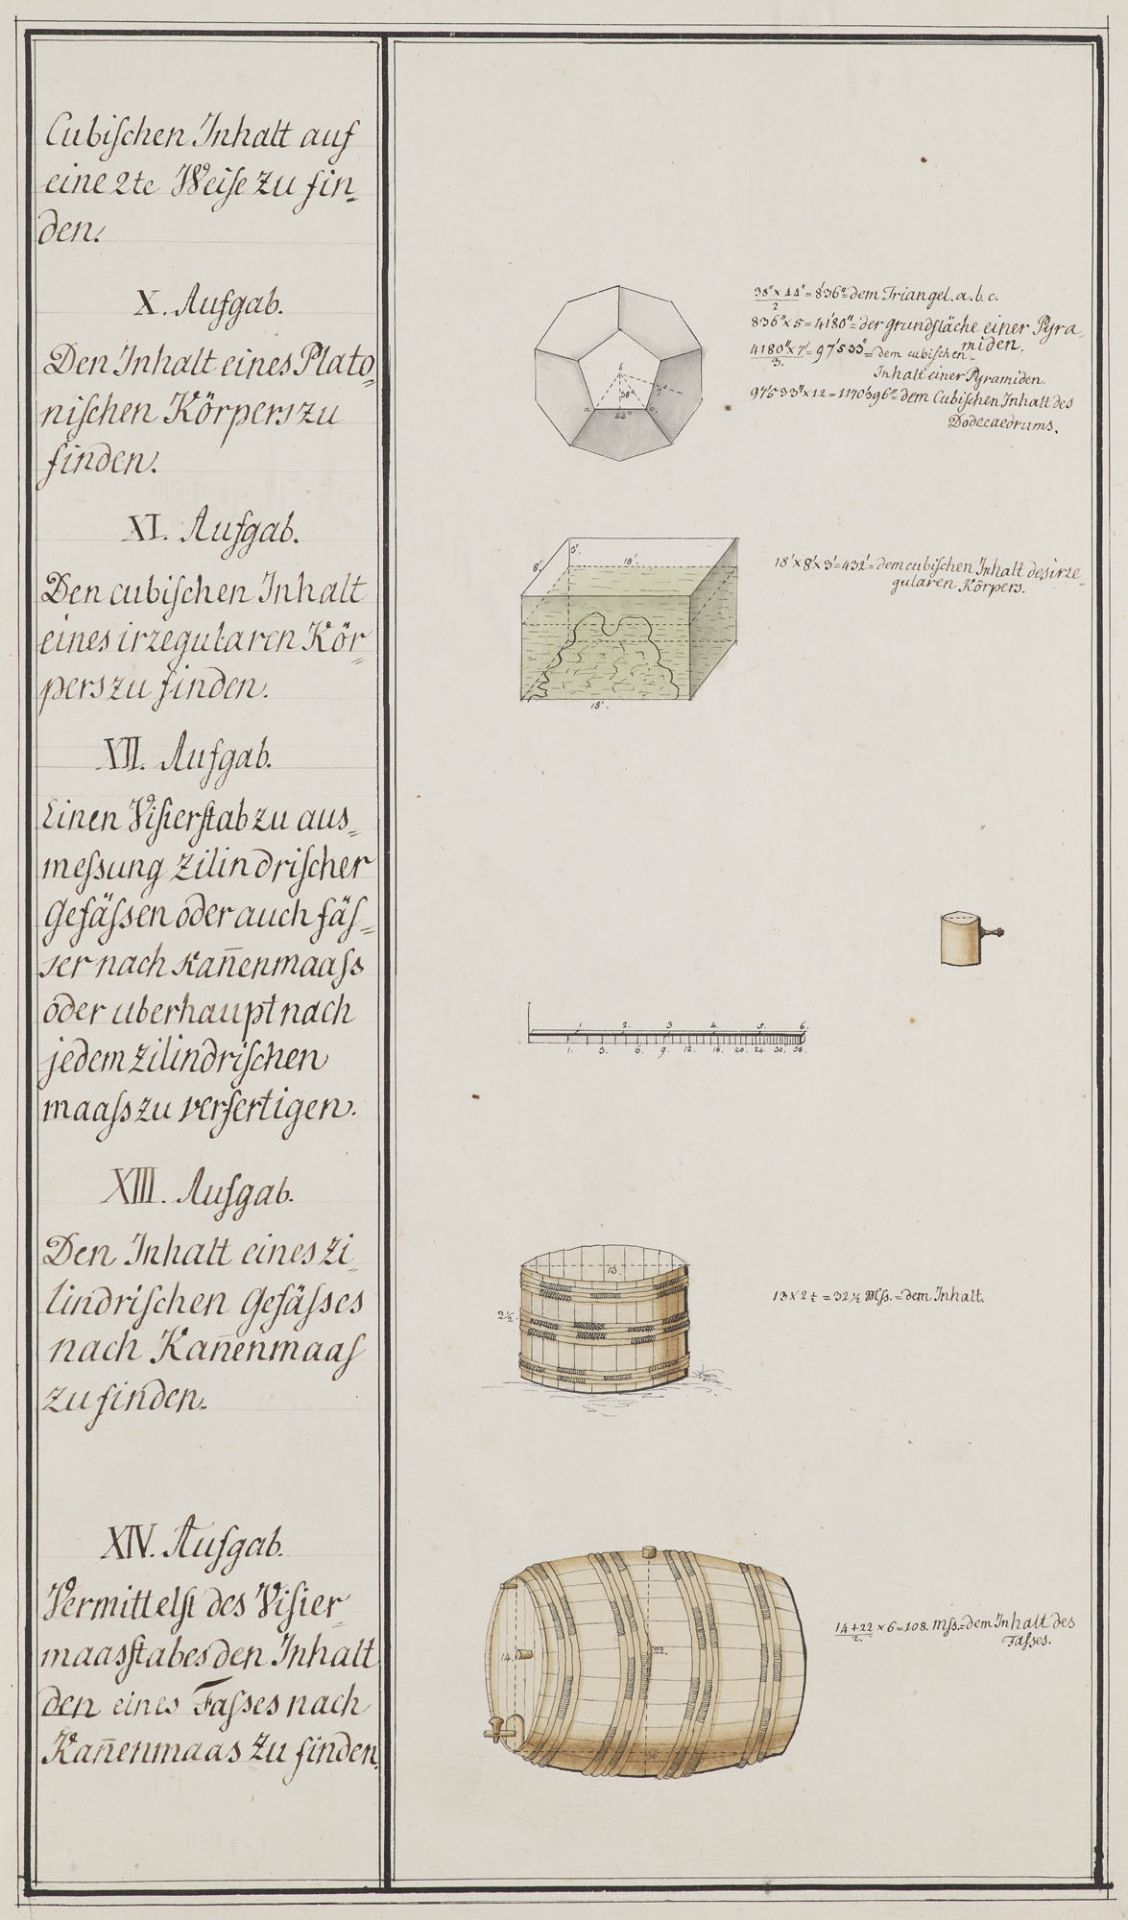 Cubischen Inhalt auf
eine 2te Weise zu fin„
den.
X. Aufgab.
Den Inhalt eines Plato„
nischen Körpers zu
finden.
XI. Aufgab.
Den cubischen Inhalt
eines irregularen Kör„
pers zu finden.
XII. Aufgab.
Einen Visierstab zu aus„
messung zilindrischer
Gefässen oder auch fäs„
ser nach Kan̄enmaass
oder uberhaupt nach
jedem zilindrischen
maass zu verfertigen.
XIII. Aufgab.
Den Inhalt eines zi„
lindrischen Gefässes
nach Kan̄enmaas
zu finden.
XIV. Aufgab.
Vermittelst des Visier„
maasstabes den Inhalt
den eines Fasses nach
Kan̄enmaas zu finden.
b.
38"
a. c.
44"
7'
38" × 44" = 8'36" = dem Triangel. a. b. c.
2
836" × 5 = 41'80" = der grundfläche einer Pyra„
miden.
4180" × 7' = 97'533' = dem cubischen
3.
Inhalt einer Pyramiden.
97'533" × 12 = 1170'396" = dem Cubischen Inhalt des
Dodecaedrums.
3'.
8'. 18'.
18'.
18' × 8' × 3' = 432' = dem cubischen Inhalt des irre„
gularen Körpers.
1. 2. 3. 4. 5. 6.
1. 3. 6. 9. 12. 16. 20. 24. 30. 36.
13.
2½.
13 × 2½ = 32½ Mss. = dem Inhalt.
14. 22.
6
14+22 × 6 = 108. Mss. = dem Inhalt des
2.
Fasses.